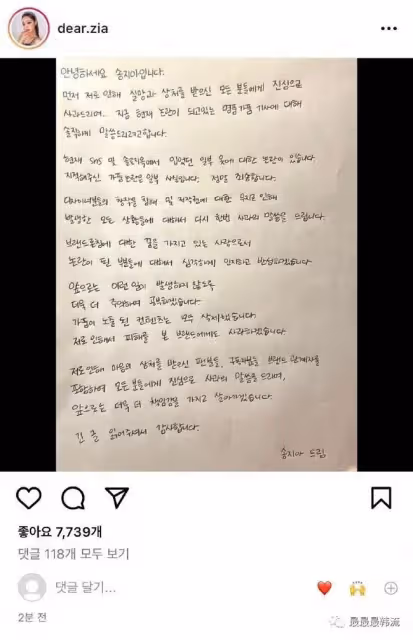 dear.zia
안녕하세요 송지아입니다.
먼저 저로 인해 실망과 상처를 받으신 모든 분들에게 진심으로
사과드리며.. 지금 현재 논란이 되고있는 명품가품 기사에 대해
솔직하게 말씀드리려고합니다.
현재 SNS 및 솔로지옥에서 입었던 일부 옷에 대한 논란이 있습니다
지적해주신 가품 논란은 일부 사실입니다. 정말 죄송합니다.
디자이너분들의 창작물 침해 및 저작권에 대한 무지로 인해
발생한 모든 상황들에 대해서 다시 한번 사과의 말씀을 드립니다.
브랜드론칭에 대한 꿈을 가지고 있는 사람으로서
논란이 된 부분들에 대해서 심각하게 인지하고 반성하겠습니다.
앞으로는 이런 일이 발생하지 않도록
더욱 더 주의하며 공부하겠습니다.
가품이 노출 된 컨텐츠는 모두 삭제했습니다.
저로 인해서 피해를 본 브랜드에게도 사과하겠습니다.
저로 인해 마음의 상처를 받으신 팬분들, 구독자분들 브랜드 관계자를
포함하여 모든 분들에게 진심으로 사과의 말씀을 드리며,
앞으로는 더욱 더 책임감을 가지고 살아가겠습니다.
긴 글 읽어주셔서 감사합니다.
송지아 드림
좋아요 7,739개
댓글 118개 모두 보기
댓글 달기...
2분 전
最最最韩流